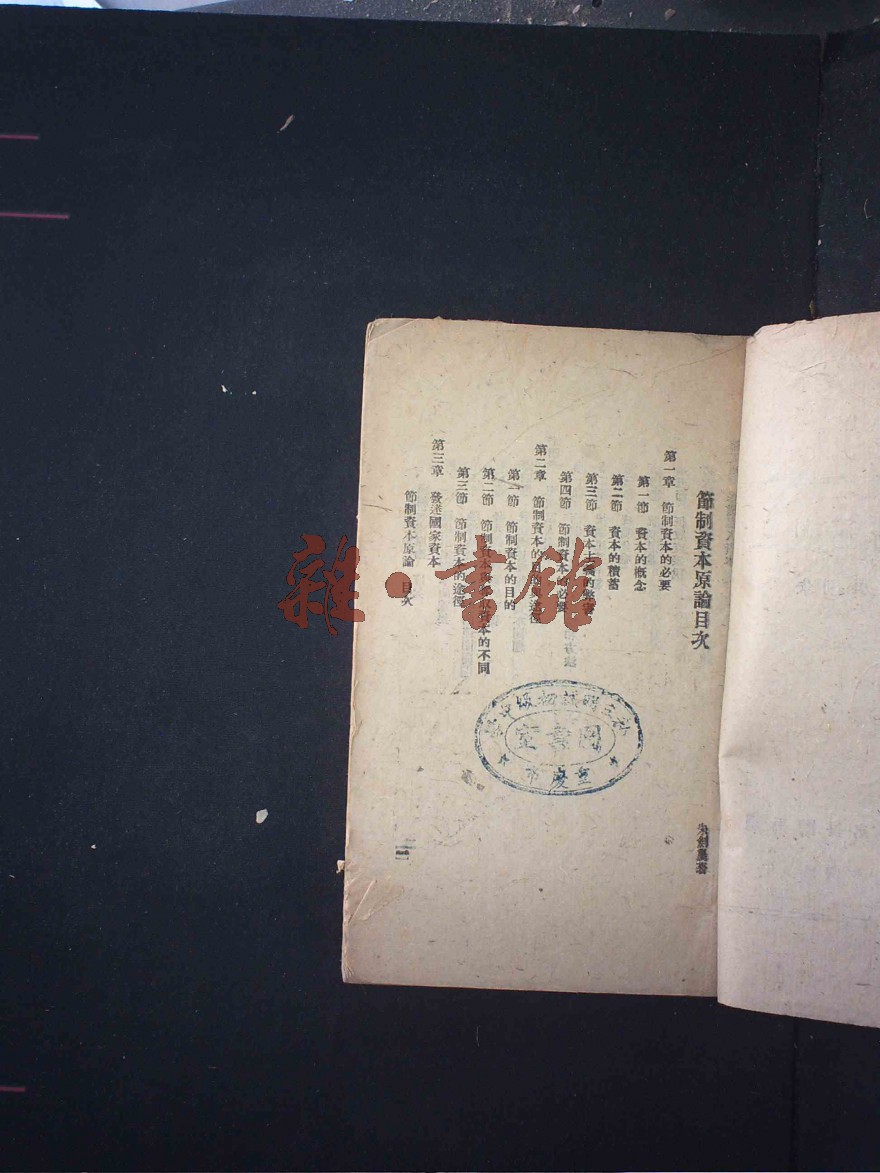 節制資本原論目次
朱劍農著
第一章　節制資本的必要
第一節　資本的概念
第二節　資本的積蓄
第三節　資本主義的弊害
第四節　節制資本的必要
第二章　節制資本的目的與途徑
第一節　節制資本的目的
第二節　節制資本與　取資本的不同
第三節　節制資本的途徑
第三章　發達國家資本
節制資本原論　目次
一
雜·書館
圖書室
重慶市